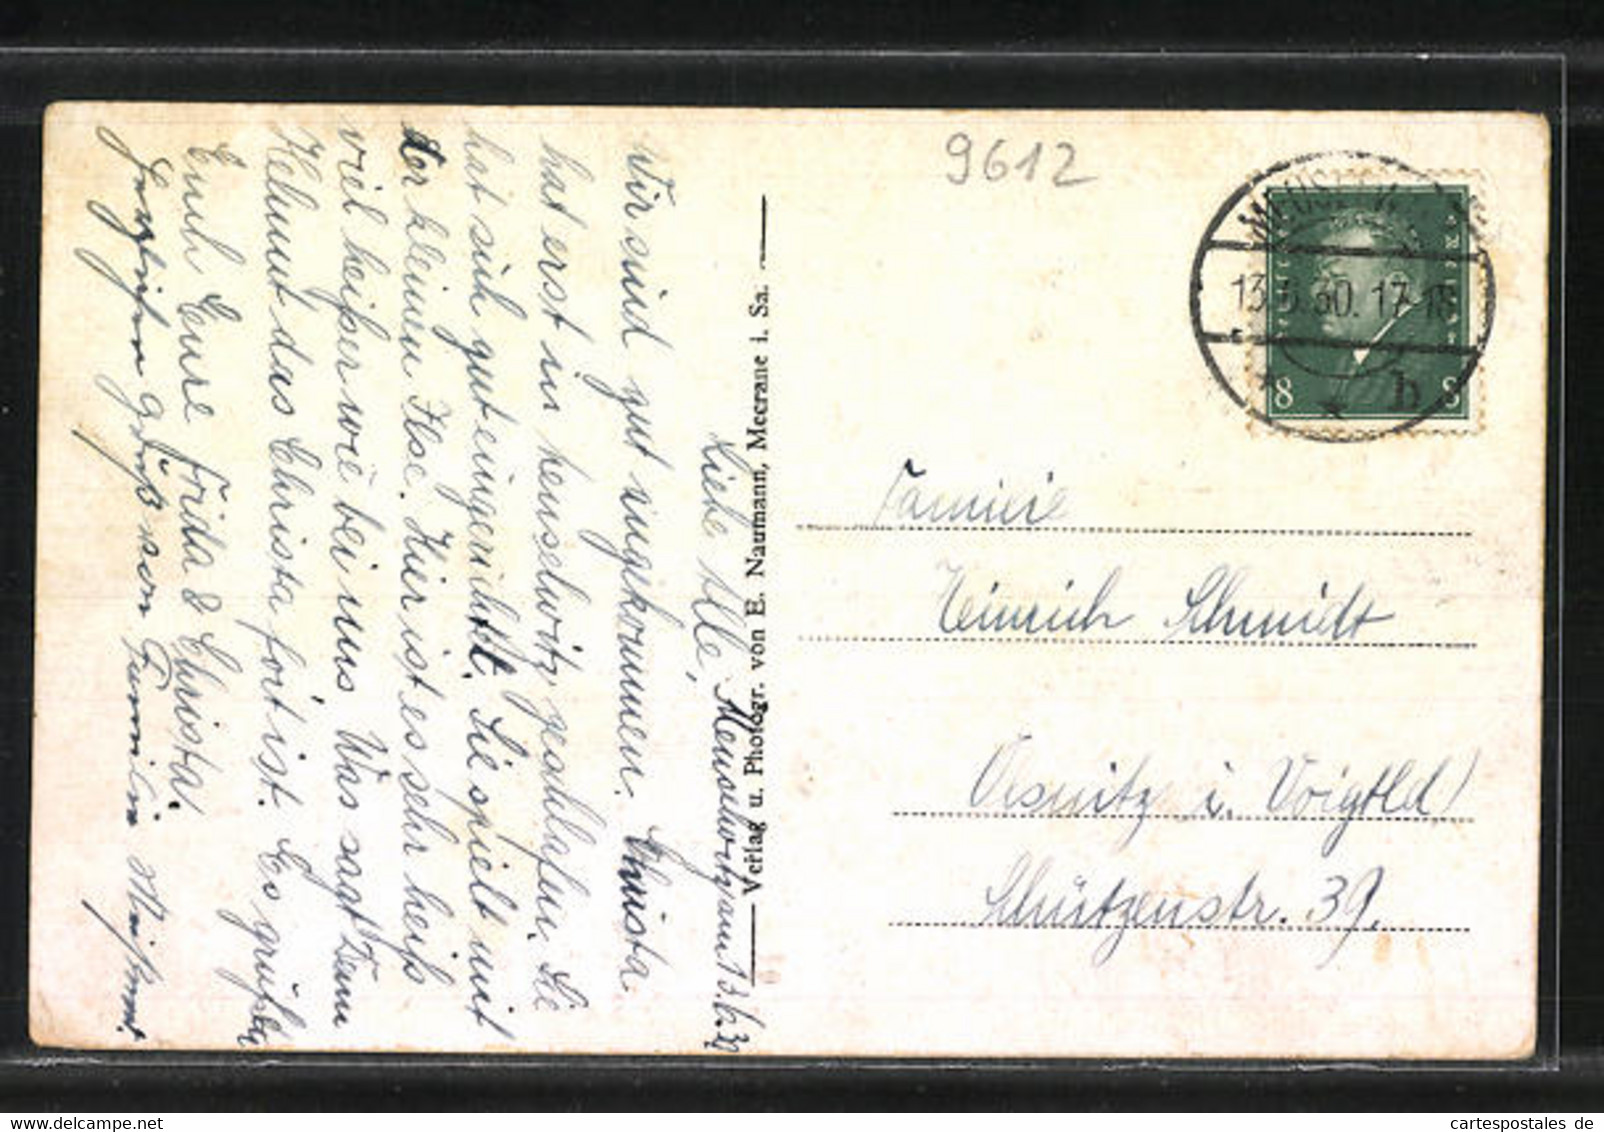 9612
13.6.30. 17-18
8 8
h
Familie
Heinrich Schmidt
Oelsnitz i. Voigtld
Schützenstr. 39.
Verlag u. Photogr. von E. Naumann, Meerane i. Sa.
Meuselwitz am 13.6.30
Liebe Alle,
Wir sind gut angekommen. Christa
hat erst in Meuselwitz geschlafen. Sie
hat sich gut eingerichtet. Sie spielt mit
der kleinen Ilse. Hier ist es sehr heiß
viel heißer wie bei uns. Was sagt denn
Helmut das Christa fort ist. Es grüßen
Euch Eure Frida & Christa.
Herzlichen Gruß von Familie
cartespostales de
www.cartespostales.com